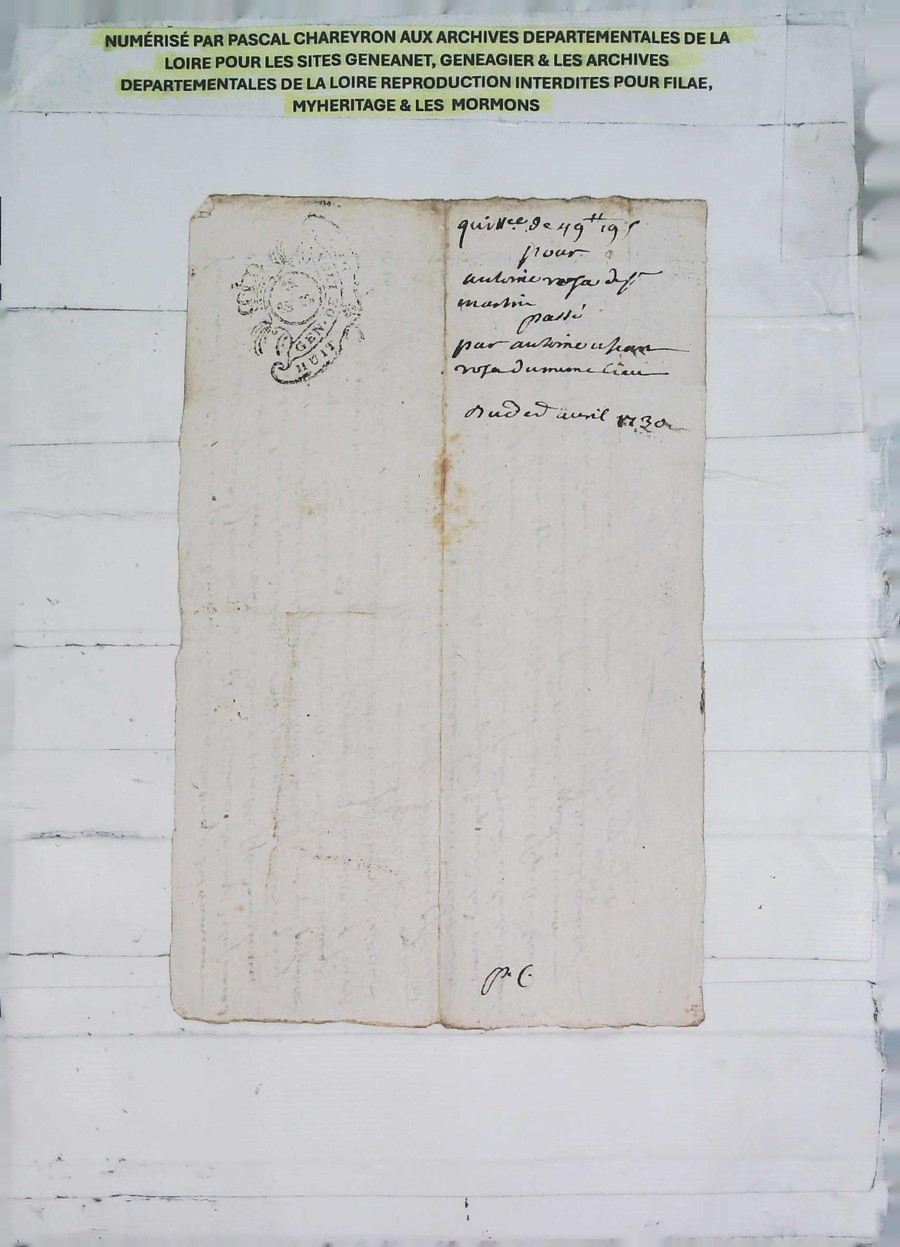 NUMÉRISÉ PAR PASCAL CHAREYRON AUX ARCHIVES DEPARTEMENTALES DE LA
LOIRE POUR LES SITES GENEANET, GENEAGIER & LES ARCHIVES
DEPARTEMENTALES DE LA LOIRE REPRODUCTION INTERDITES POUR FILAE,
MYHERITAGE & LES MORMONS
GEN
HUIT
quittce de 49tt 19s
pour
antoine de st
martin
passé
par antoine
du meme lieu
avril 1730
pr C